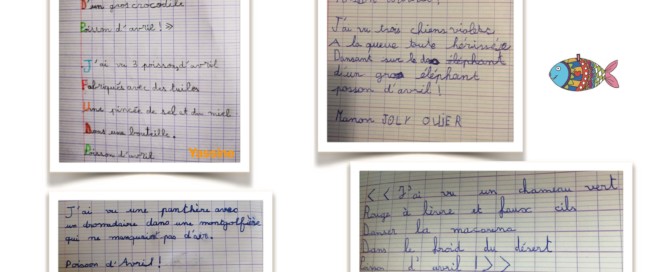 D'un gros crocodile
Poisson d'avril ! »
J'ai vu 3 poissons d'avril
Fabriqués avec des tuiles
Une pincée de sel et du miel
Dans une bouteille.
Poisson d'avril
J'ai vu trois chiens violets
A la queue toute hérissée
Dansant sur le dos
d'un gros éléphant
poisson d'avril !
Manon JOLY OLIVIER
J'ai vu une panthère avec
un dromadaire dans une montgolfière
qui ne manquait pas d'air.
Poisson d'Avril !
<< J'ai vu un chameau vert
Rouge à lèvre et faux cils
Danser la macarena
Dans le froid du désert
d'avril ! >>